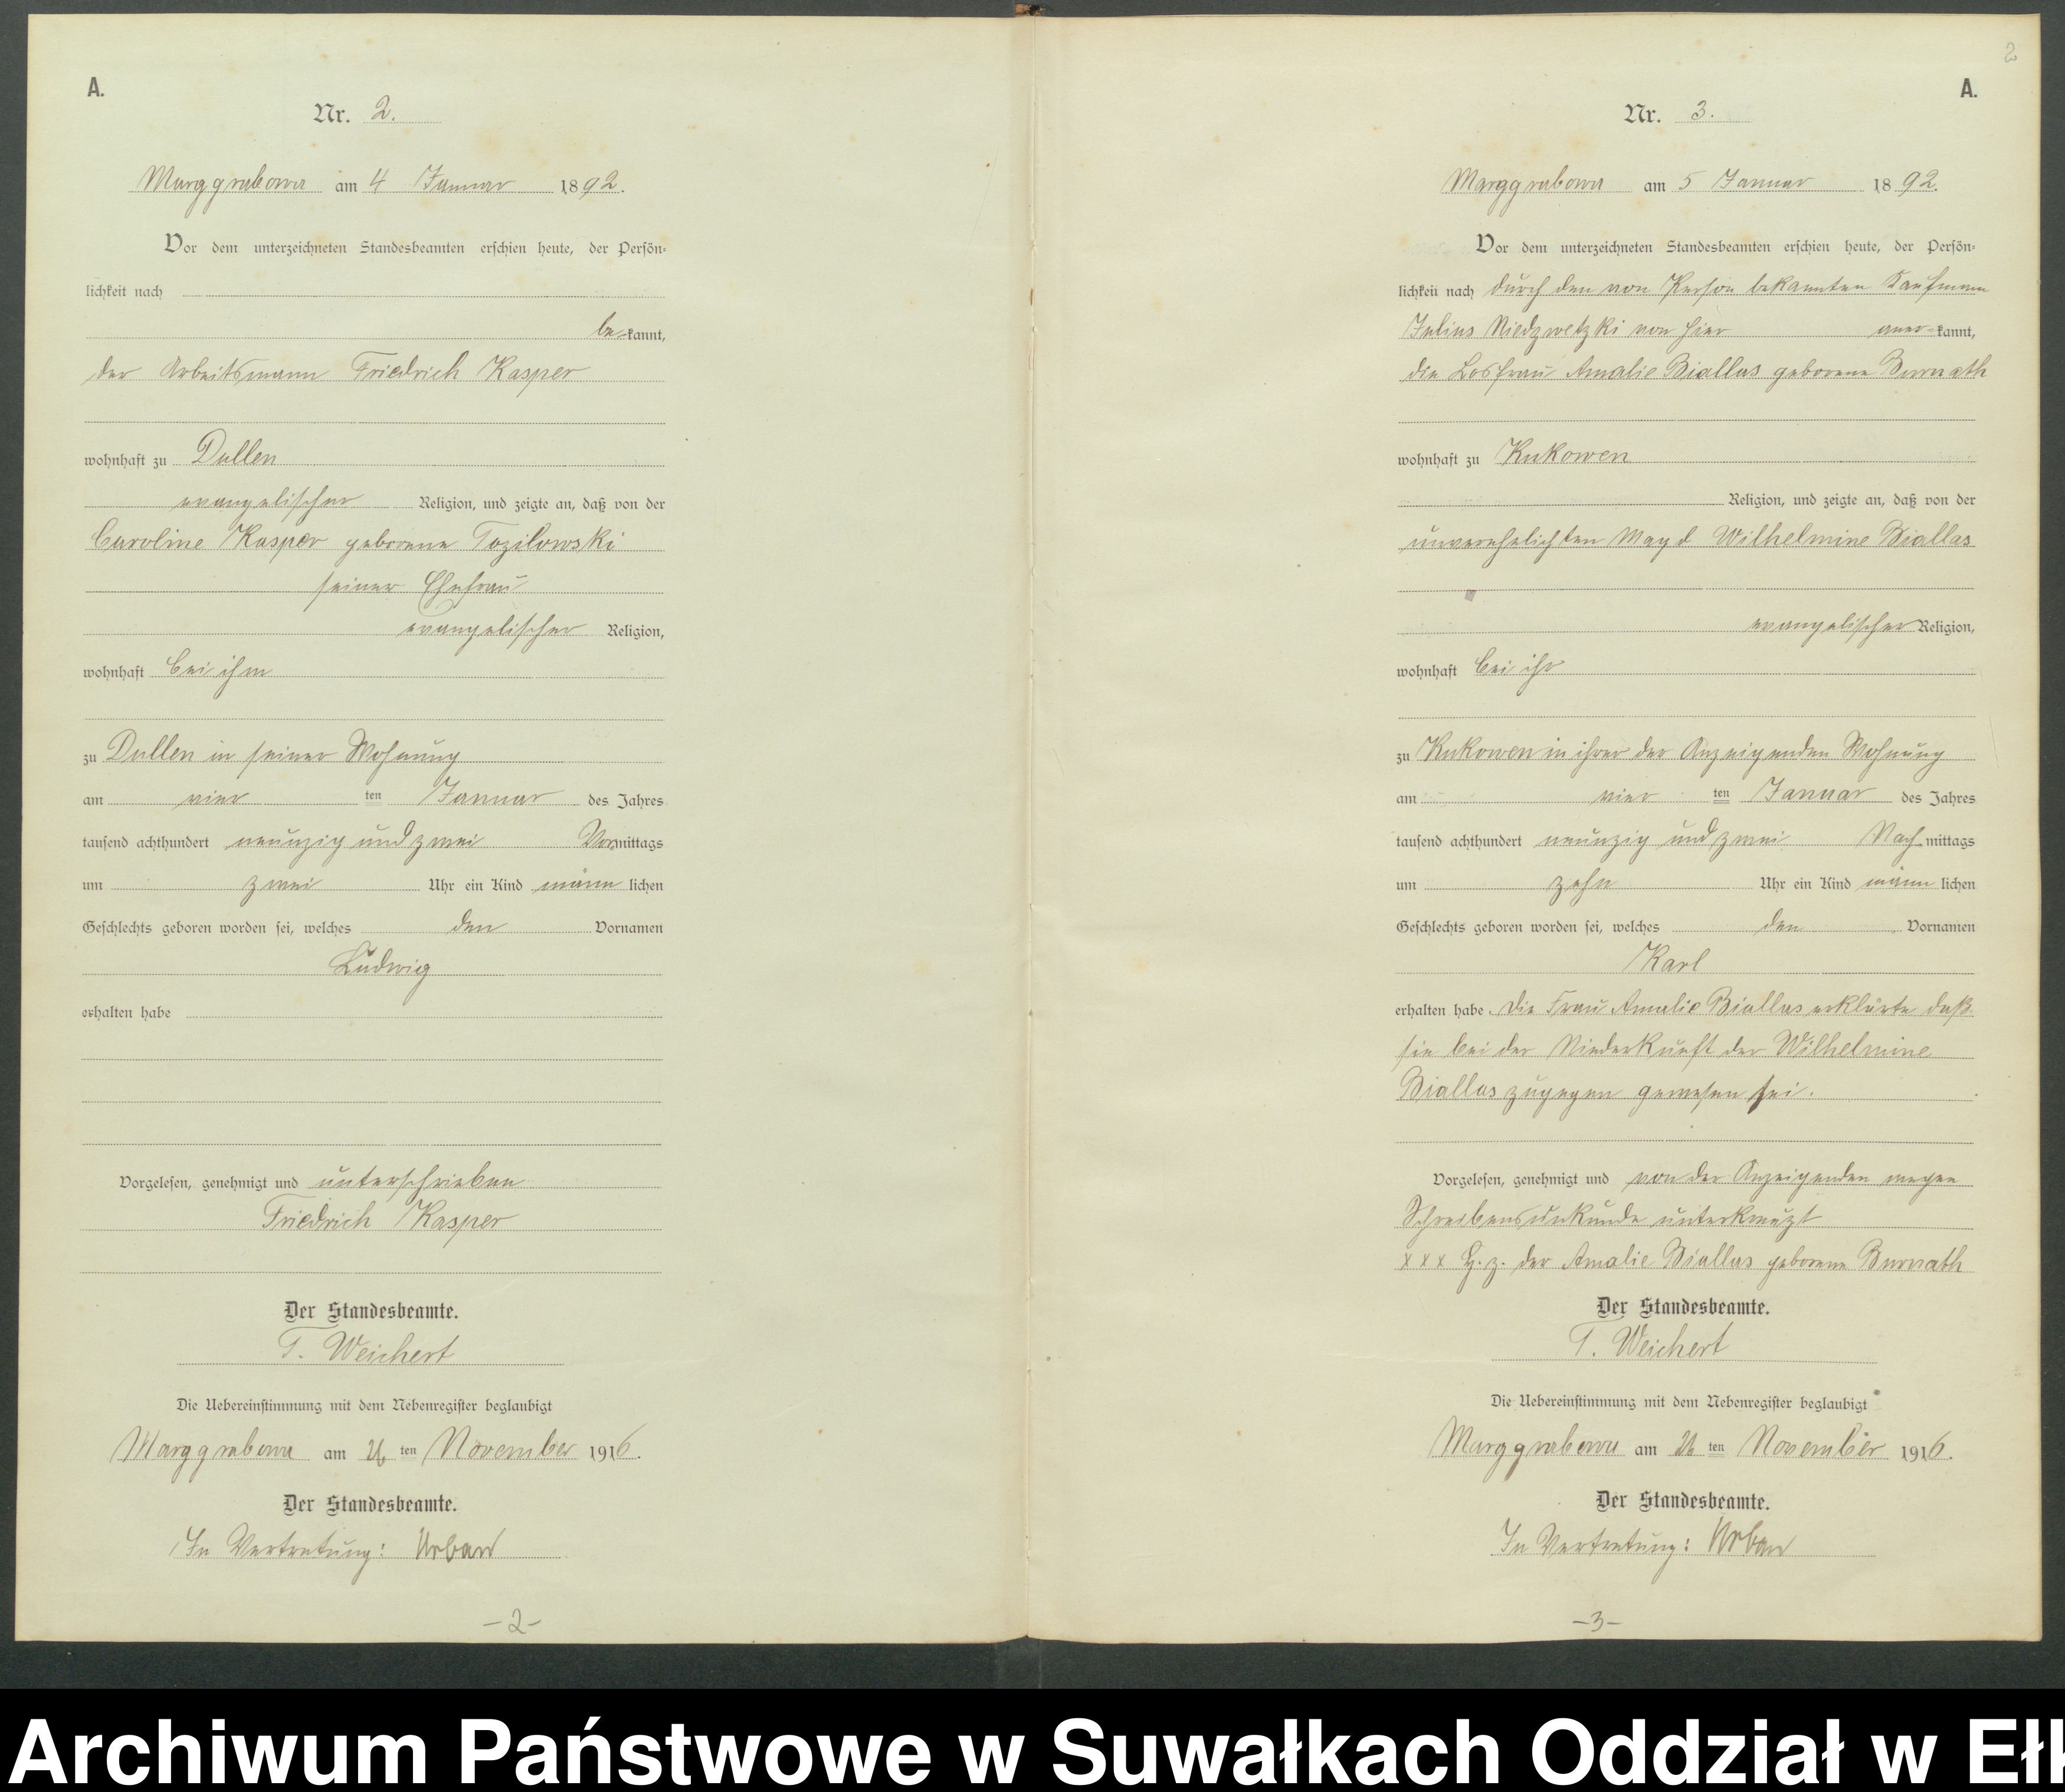 A.
Nr. 2.
Marggrabowa am 4 Januar 1892.
Vor dem unterzeichneten Standesbeamten erschien heute, der Persön-
lichkeit nach
be-kannt,
der Arbeitsmann Friedrich Kasper
wohnhaft zu Dullen
evangelischer Religion, und zeigte an, daß von der
Caroline Kasper geborene Tozilowski
seiner Ehefrau
evangelischer Religion,
wohnhaft bei ihm
zu Dullen in seiner Wohnung
am vier ten Januar des Jahres
tausend achthundert neunzig und zwei Vormittags
um zwei Uhr ein Kind männlichen
Geschlechts geboren worden sei, welches den Vornamen
Ludwig
erhalten habe
Vorgelesen, genehmigt und unterschrieben
Friedrich Kasper
Der Standesbeamte.
T. Weichert
Die Uebereinstimmung mit dem Nebenregister beglaubigt
Marggrabowa am ten November 1916.
Der Standesbeamte.
In Vertretung: Urban
-2-
2
A.
Nr. 3.
Marggrabowa am 5 Januar 1892.
Vor dem unterzeichneten Standesbeamten erschien heute, der Persön-
lichkeit nach durch den von Person bekannten Kaufmann
Julius Niedzwetzki von hier aner-kannt,
die Losfrau Amalie Biallas geborene
wohnhaft zu Kukowen
Religion, und zeigte an, daß von der
unverehelichten Magd Wilhelmine Biallas
evangelischer Religion,
wohnhaft bei ihr
zu Kukowen in ihrer der Anzeigenden Wohnung
am vier ten Januar des Jahres
tausend achthundert neunzig und zwei Nachmittags
um zehn Uhr ein Kind männlichen
Geschlechts geboren worden sei, welches den Vornamen
Karl
erhalten habe. Die Frau Amalie Biallas erklärte daß
sie bei der Niederkunft der Wilhelmine
Biallas zugegen gewesen sei.
Vorgelesen, genehmigt und von der Anzeigenden wegen
Schreibensunkunde unterkreuzt
x x x H. z. der Amalie Biallas geborene
Der Standesbeamte.
T. Weichert
Die Uebereinstimmung mit dem Nebenregister beglaubigt
Marggrabowa am ten November 1916.
Der Standesbeamte.
In Vertretung: Urban
-3-
Archiwum Państwowe w Suwałkach Oddział w Ełk